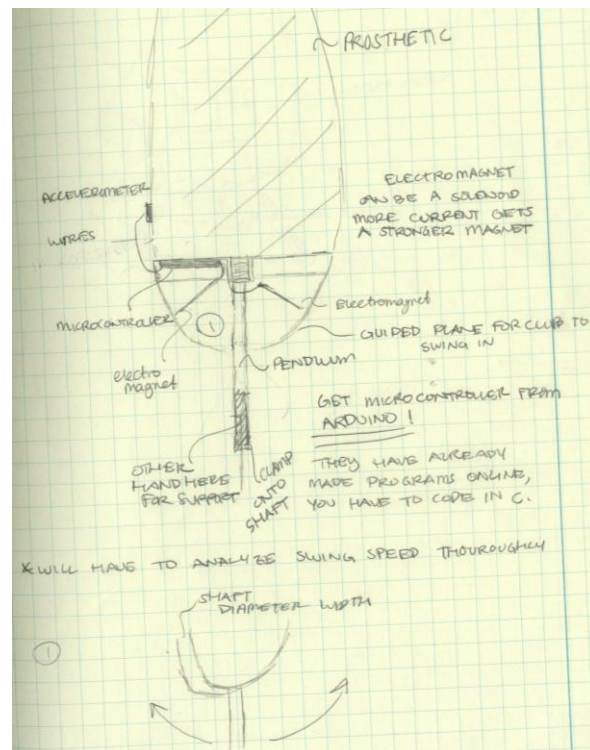 PROSTHETIC
ACCELEROMETER
WIRES
ELECTROMAGNET
CAN BE A SOLENOID
MORE CURRENT GETS
A STRONGER MAGNET
MICROCONTROLLER
1
Electromagnet
GUIDED PLANE FOR CLUB TO
SWING IN
electro
magnet
PENDLUM
GET MICROCONTROLLER FROM
ARDUINO!
OTHER
HAND HERE
FOR SUPPORT
CLAMP
ONTO
SHAFT
THEY HAVE ALREADY
MADE PROGRAMS ONLINE,
YOU HAVE TO CODE IN C.
*WILL HAVE TO ANALYZE SWING SPEED THOUROUGHLY
SHAFT
DIAMETER WIDTH
1